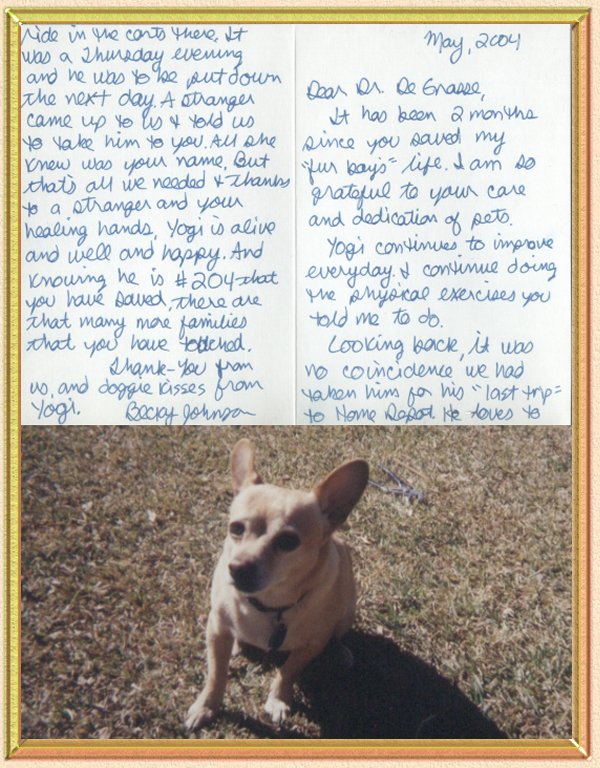 May, 2004
Dear Dr. De Grasse,
It has been 2 months
since you saved my
"fur boy's" life. I am so
grateful to your care
and dedication of pets.
Yogi continues to improve
everyday. I continue doing
the physical exercises you
told me to do.
Looking back, it was
no coincidence we had
taken him for his "last trip"
to Home Depot. He loves to
ride in the carts there. It
was a Thursday evening
and he was to be put down
the next day. A stranger
came up to us & told us
to take him to you. All she
knew was your name. But
that's all we needed & thanks
to a stranger and your
healing hands, Yogi is alive
and well and happy. And
knowing he is #204 that
you have saved, there are
that many more families
that you have touched.
Thank-You from
us, and doggie kisses from
Yogi. Becky Johnson